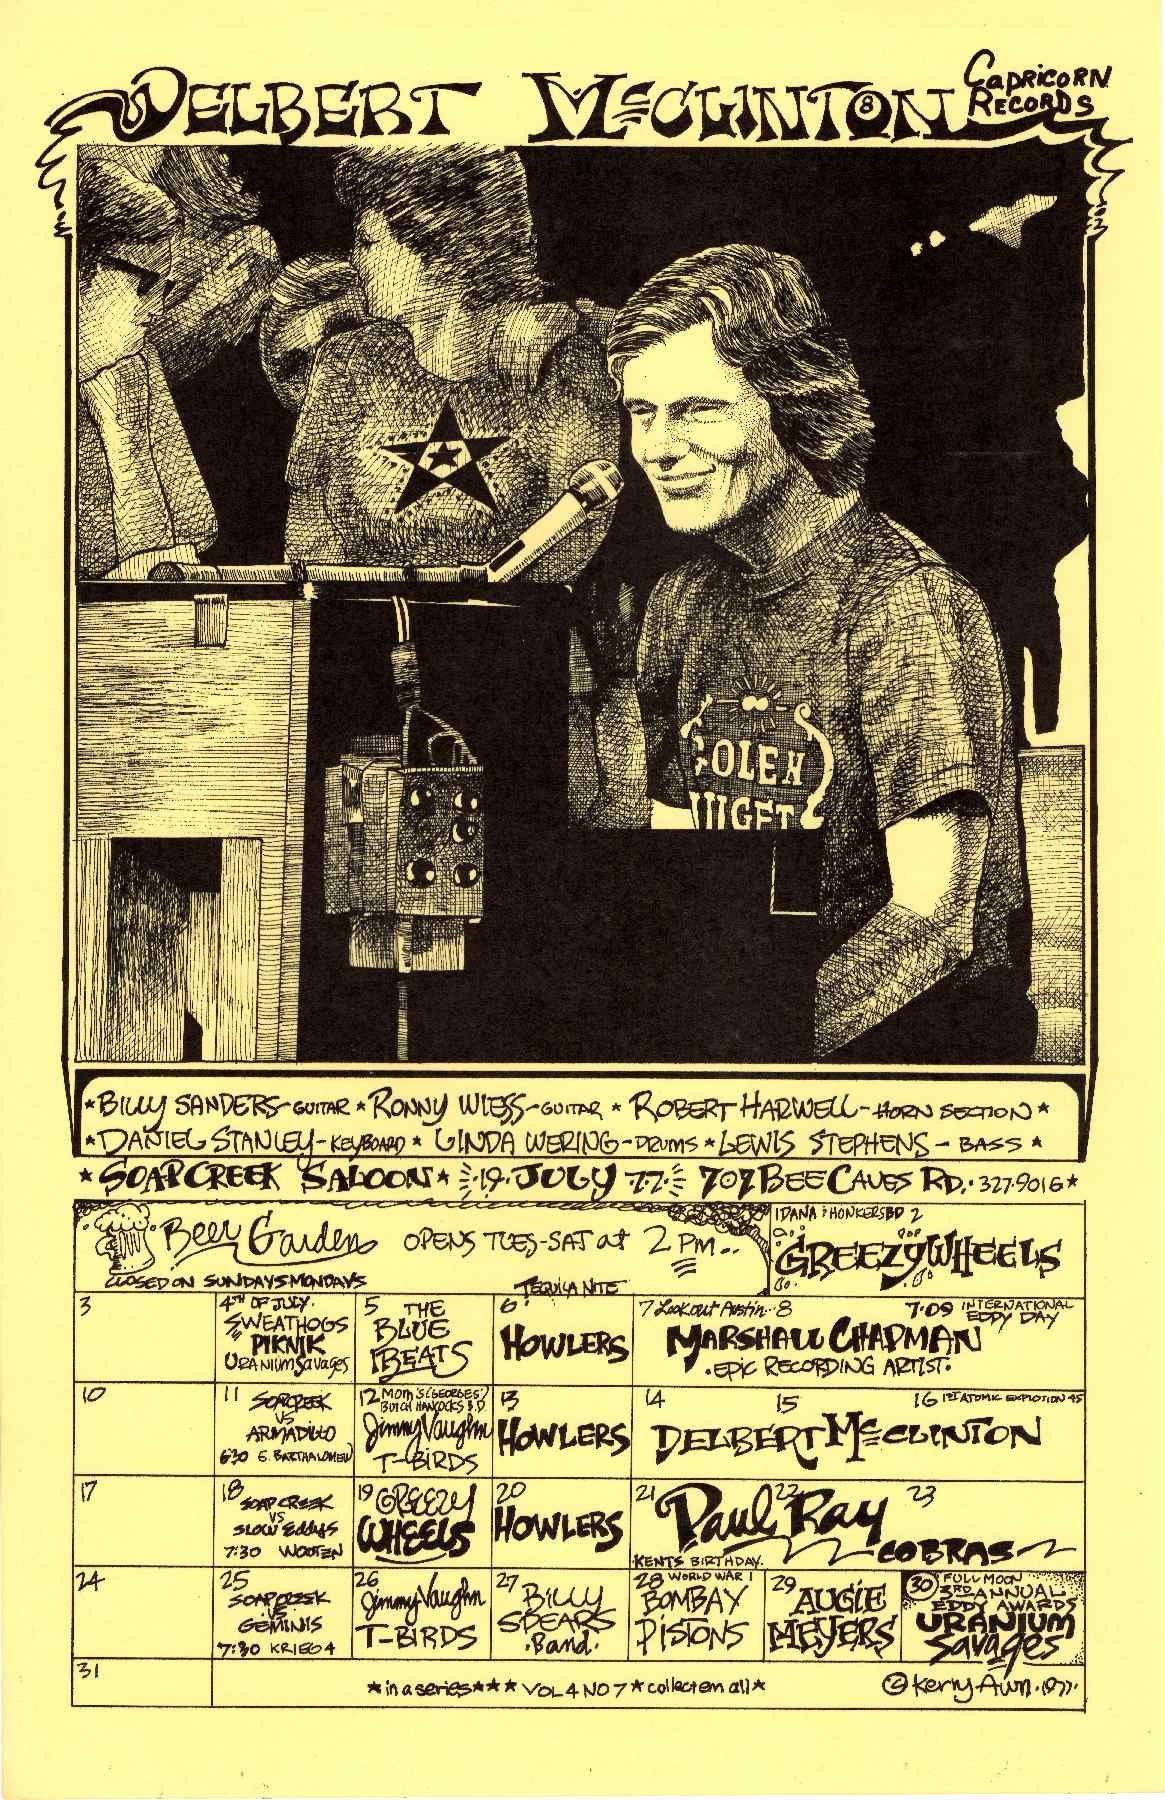 DELBERT McCLINTON
CAPRICORN
RECORDS
8
GOLEN
NUGET
★BILLY SANDERS-GUITAR★RONNY WIESS-GUITAR★ROBERT HARWELL-HORN SECTION★
★DANIEL STANLEY-KEYBOARD★LINDA WERING-DRUMS★LEWIS STEPHENS-BASS★
★SOAP CREEK SALOON★19·JULY·77·707 BEE CAVES RD.·327·9016★
Beer Garden OPENS TUES-SAT at 2 PM..
CLOSED ON SUNDAYS MONDAYS
IDANA & HONKERS BD 2
GREEZY WHEELS
TEQUILA NITE
3
4TH OF JULY.
SWEATHOGS
PIKNIK
URANIUM Savages
5 THE
BLUE
BEATS
6
HOWLERS
7 Lookout Austin·· 8
7·09 INTERNATIONAL
EDDY DAY
MARSHALL CHAPMAN
·EPIC RECORDING ARTIST·
10
11 SOAPCREEK
VS
ARMADILLO
6:30 E. BARTHALOMEW
12 MOM'S (GEORGES')
BUTCH HANCOCKS B.D.
Jimmy Vaughn
T-BIRDS
13
HOWLERS
14 15 16 1ST ATOMIC EXPLOTION 45
DELBERT McCLINTON
17
18 SOAP CREEK
VS
SLOW Eddys
7:30 WOOTEN
19 GREEZY
WHEELS
20
HOWLERS
21 22 23
Paul Ray
COBRAS
KENTS BIRTHDAY.
24
25
SOAPCREEK
VS
GEMINIS
7:30 KRIEG 4
26
Jimmy Vaughn
T-BIRDS
27
BILLY
SPEARS
·Band·
28 WORLD WAR 1
BOMBAY
PISTONS
29
AUGIE
MEYERS
30 FULL MOON
3RD ANNUAL
EDDY AWARDS
URANIUM
Savages
31
★in a series★★★VOL 4 NO 7★collect em all★
© Kerry Awn·1977·